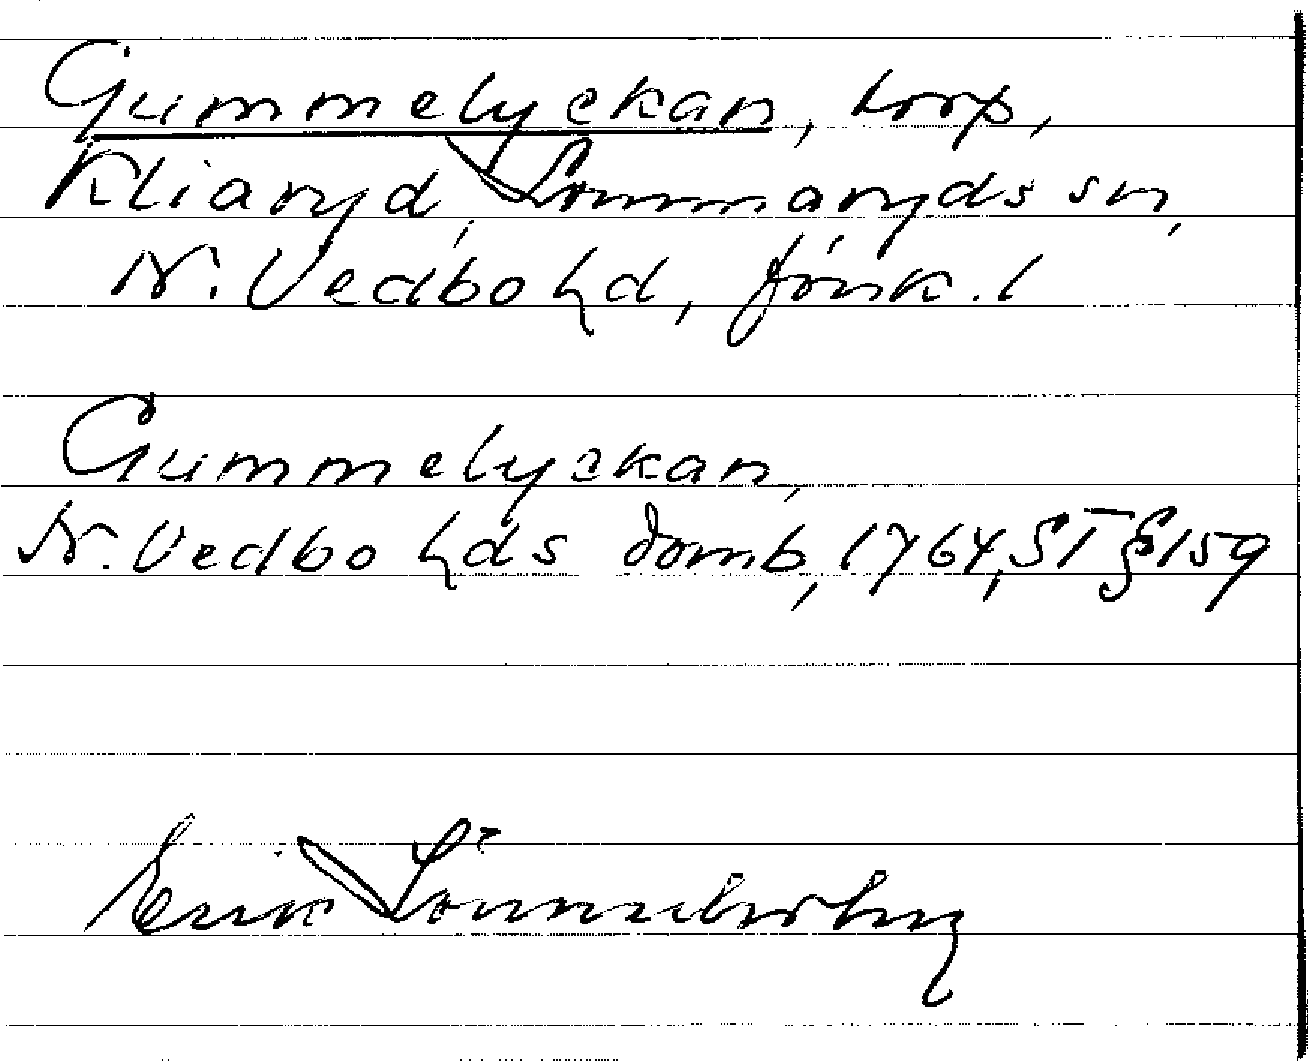 Gummelyckan, torp,
Kliaryd, Lommaryds sn,
N. Vedbo hd, Jönk. l
Gummelyckan,
N. Vedbo hds domb, 1764, ST § 159
Erik Lönnerberg